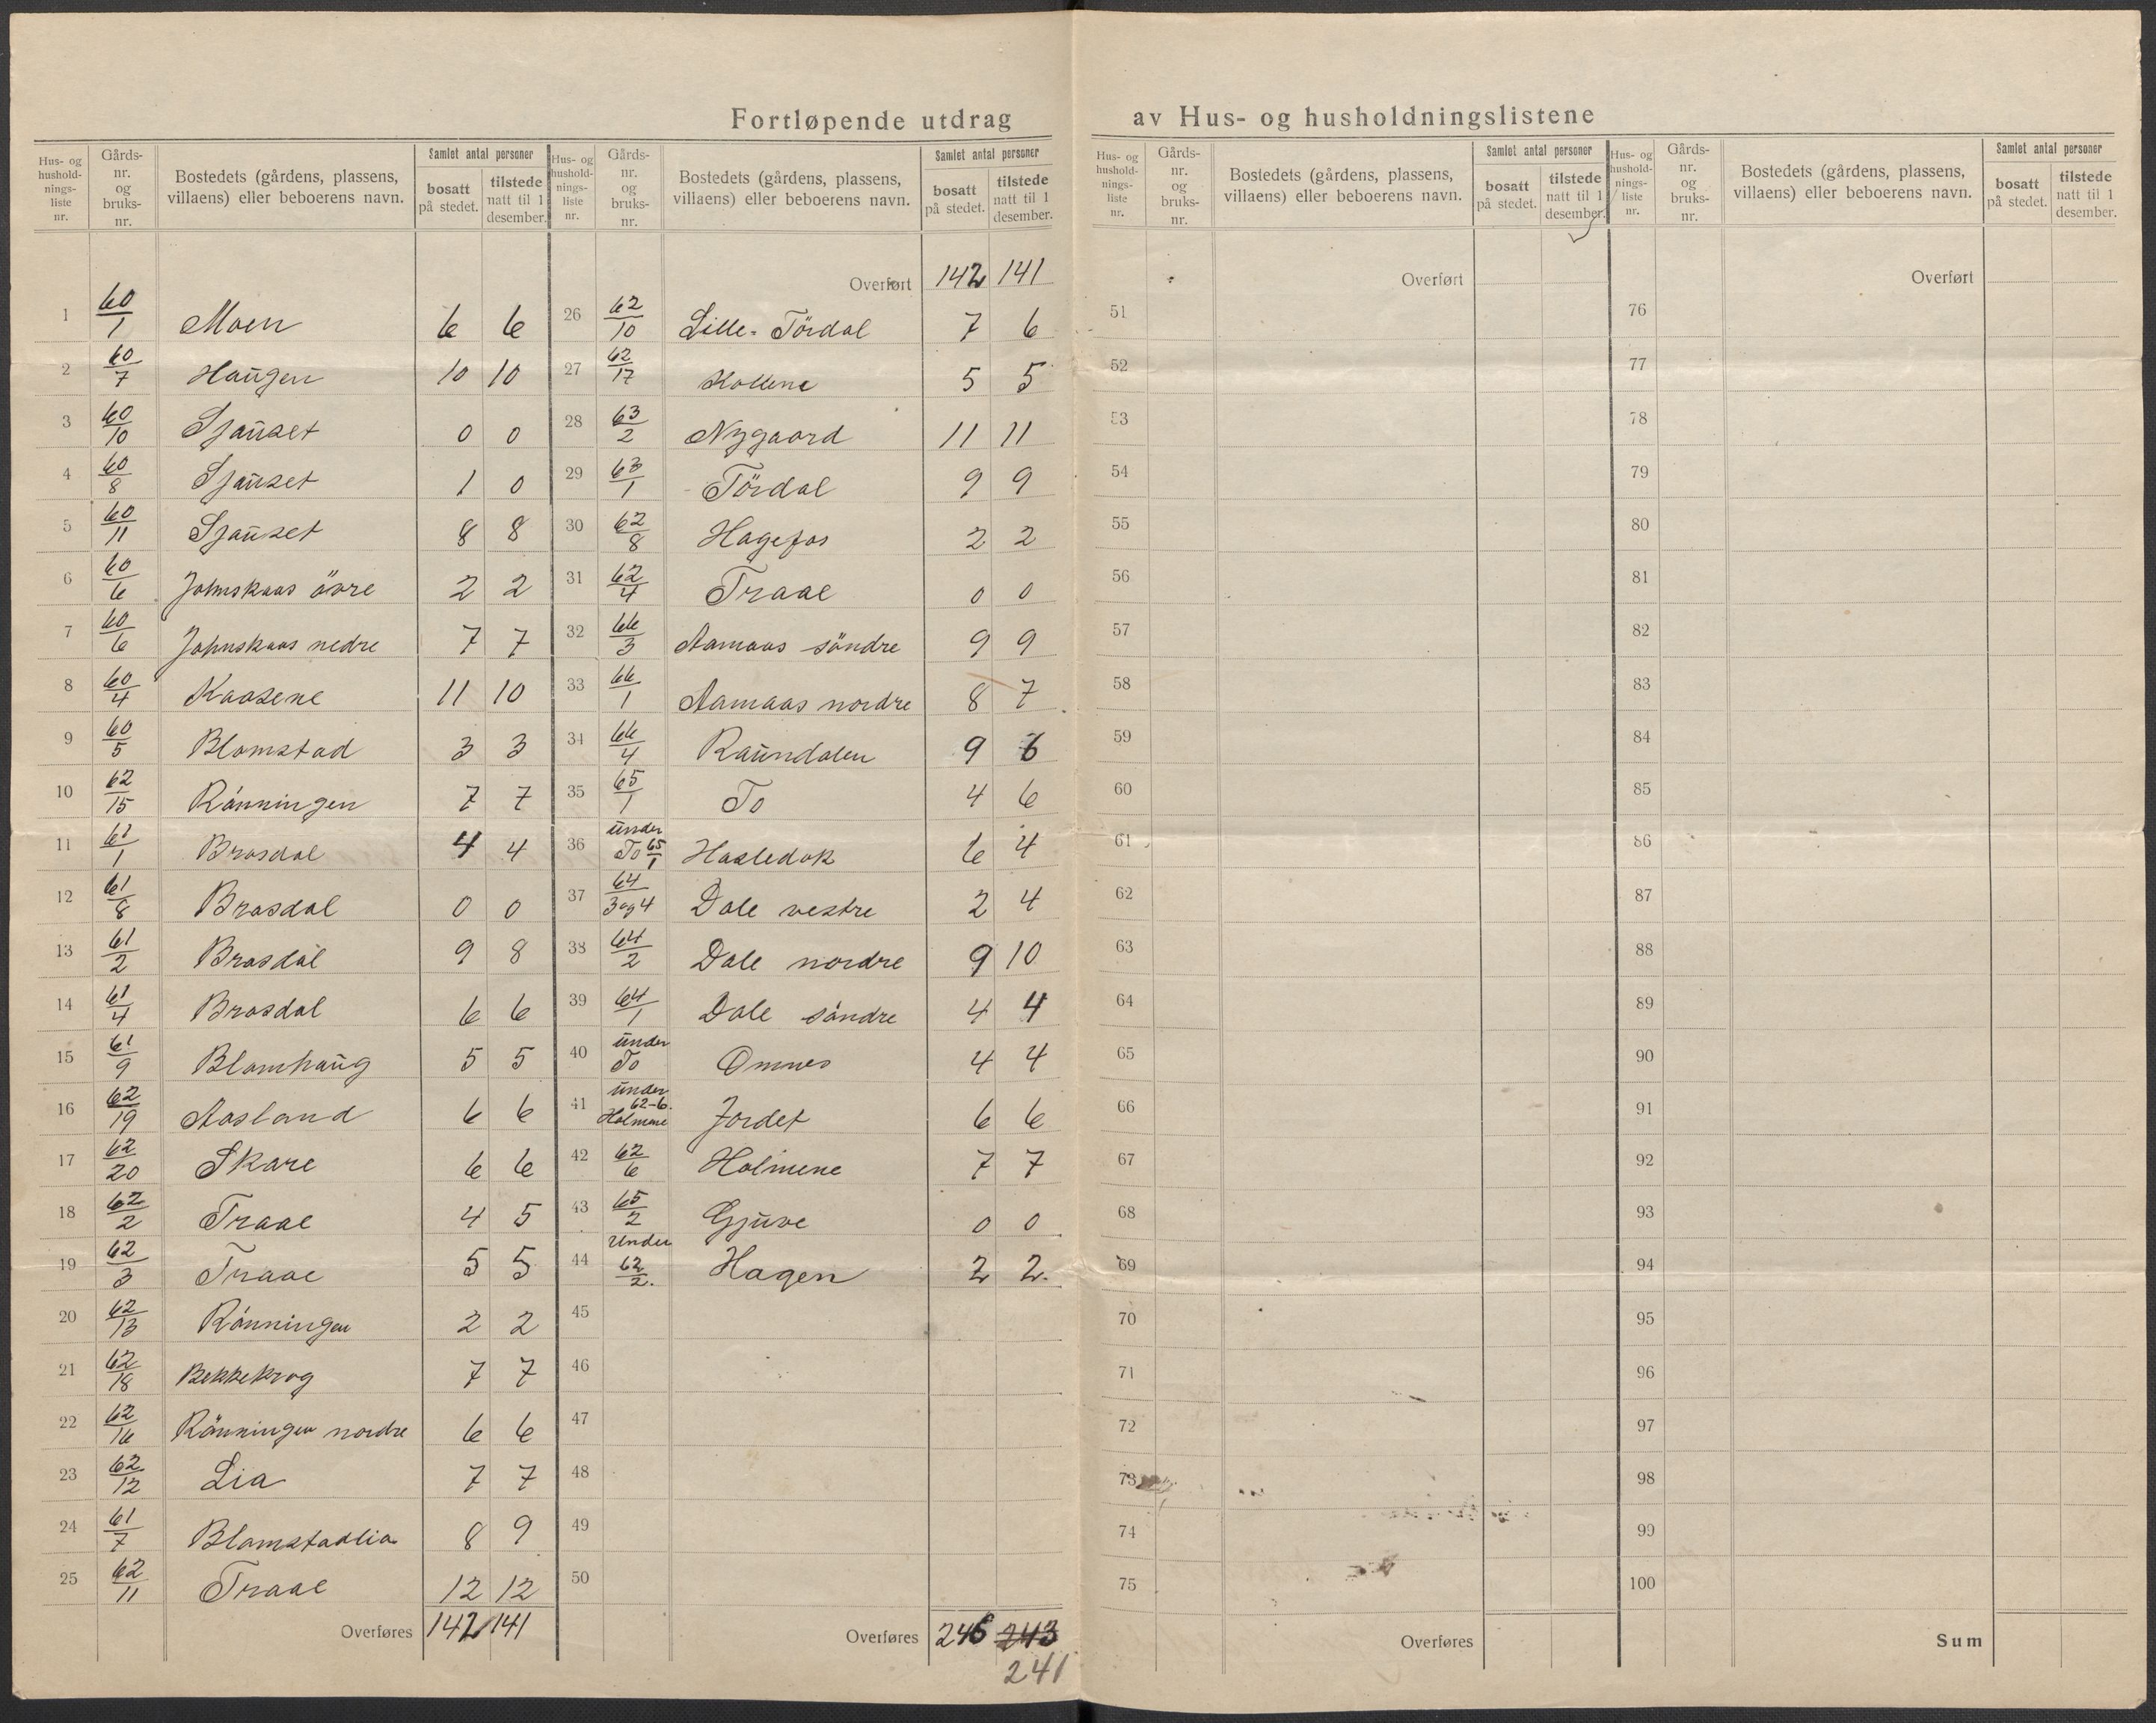 Fortløpende utdrag av Hus- og husholdningslistene
Hus- og husholdningsliste nr. | Gårds-nr. og bruks-nr. | Bostedets (gårdens, plassens, villaens) eller beboerens navn. | Samlet antal personer: bosatt på stedet. | tilstede natt til 1 desember.
1 60/1 Moen 6 6
2 60/7 Haugen 10 10
3 60/10 Sjauset 0 0
4 60/8 Sjauset 1 0
5 60/11 Sjauset 8 8
6 60/6 Johnskaas övre 2 2
7 60/6 Johnskaas nedre 7 7
8 60/4 Kaasene 11 10
9 60/5 Blomstad 3 3
10 62/15 Rönningen 7 7
11 61/1 Brasdal 4 4
12 61/8 Brasdal 0 0
13 61/2 Brasdal 9 8
14 61/4 Brasdal 6 6
15 61/9 Blomhaug 5 5
16 62/19 Aasland 6 6
17 62/20 Skare 6 6
18 62/2 Traae 4 5
19 62/3 Traae 5 5
20 62/13 Rönningen 2 2
21 62/18 Bekkekrog 7 7
22 62/16 Rönningen nordre 6 6
23 62/12 Lia 7 7
24 61/7 Blomstadlia 8 9
25 62/11 Traae 12 12
Overføres 142 141
Hus- og husholdningsliste nr. | Gårds-nr. og bruks-nr. | Bostedets (gårdens, plassens, villaens) eller beboerens navn. | Samlet antal personer: bosatt på stedet. | tilstede natt til 1 desember.
Overført 142 141
26 62/10 Lille-Tördal 7 6
27 62/17 Kollene 5 5
28 63/2 Nygaard 11 11
29 63/1 Tördal 9 9
30 62/8 Hagefos 2 2
31 62/4 Traae 0 0
32 66/3 Aamaas söndre 9 9
33 66/1 Aamaas nordre 8 7
34 66/4 Raundalen 9 6
35 65/1 To 4 6
36 under To 65/1 Hasledok 6 4
37 64/3 og 4 Dale vestre 2 4
38 64/2 Dale nordre 9 10
39 64/1 Dale söndre 4 4
40 under To Omnes 4 4
41 under 62-6. Holmene Jordet 6 6
42 62/6 Holmene 7 7
43 65/2 Gjuve 0 0
44 Under 62/2. Hagen 2 2.
45
46
47
48
49
50
Overføres 246 243
241
Hus- og husholdningsliste nr. | Gårds-nr. og bruks-nr. | Bostedets (gårdens, plassens, villaens) eller beboerens navn. | Samlet antal personer: bosatt på stedet. | tilstede natt til 1 desember.
Overført
51
52
53
54
55
56
57
58
59
60
61
62
63
64
65
66
67
68
69
70
71
72
73
74
75
Overføres
Hus- og husholdningsliste nr. | Gårds-nr. og bruks-nr. | Bostedets (gårdens, plassens, villaens) eller beboerens navn. | Samlet antal personer: bosatt på stedet. | tilstede natt til 1 desember.
Overført
76
77
78
79
80
81
82
83
84
85
86
87
88
89
90
91
92
93
94
95
96
97
98
99
100
Sum